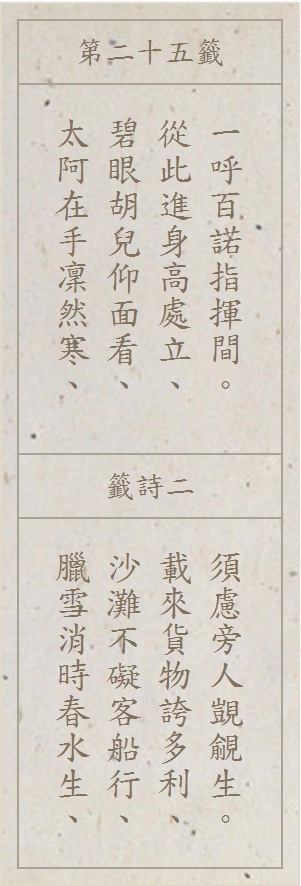 第二十五籤
太阿在手凜然寒、
碧眼胡兒仰面看、
從此進身高處立、
一呼百諾指揮間。
籤詩二
臘雪消時春水生、
沙灘不礙客船行、
載來貨物誇多利、
須慮旁人覬覦生。